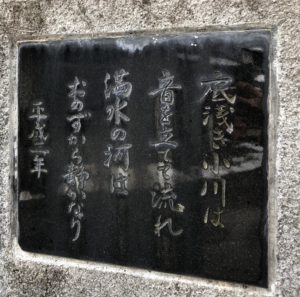 底浅き小川は
音を立てて流れ
満水の河は
おのずから静かなり
平成二年